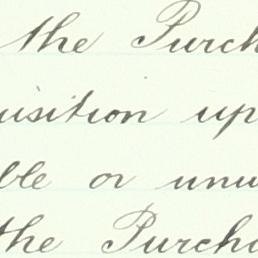 the Purch
uisition up
ble or unu
the Purcha